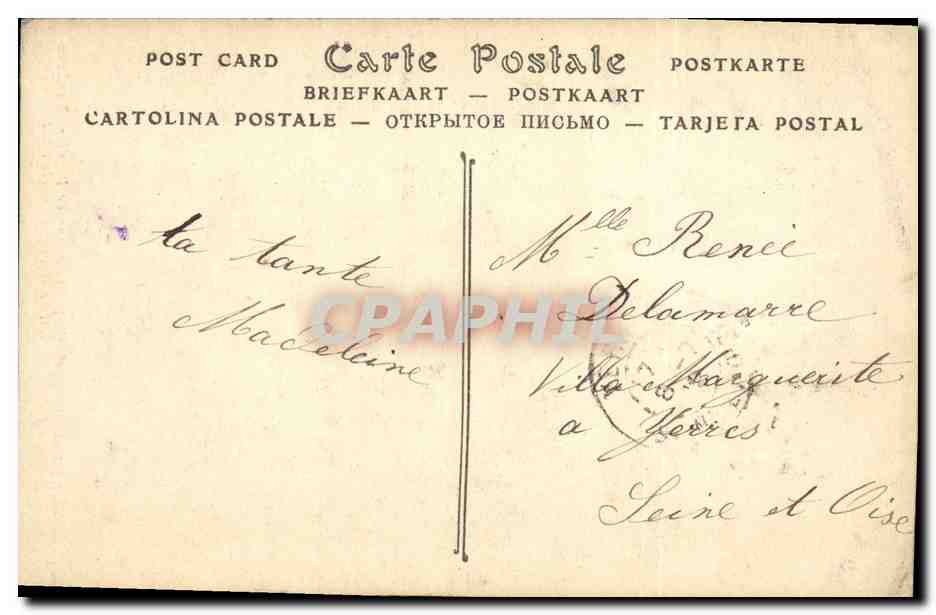 POST CARD Carte Postale POSTKARTE
BRIEFKAART — POSTKAART
CARTOLINA POSTALE — ОТКРЫТОЕ ПИСЬМО — TARJETA POSTAL
ta tante
Madeleine
Mlle Renée
Delamarre
Villa Marguerite
a Yerres
Seine et Oise
CPAPHIL